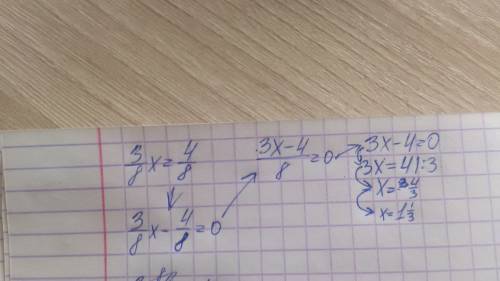 3/8 x = 4/8
3/8 x - 4/8 = 0
(3x-4)/8 = 0
3x-4=0
3x=4|:3
x=4/3
x=1 1/3